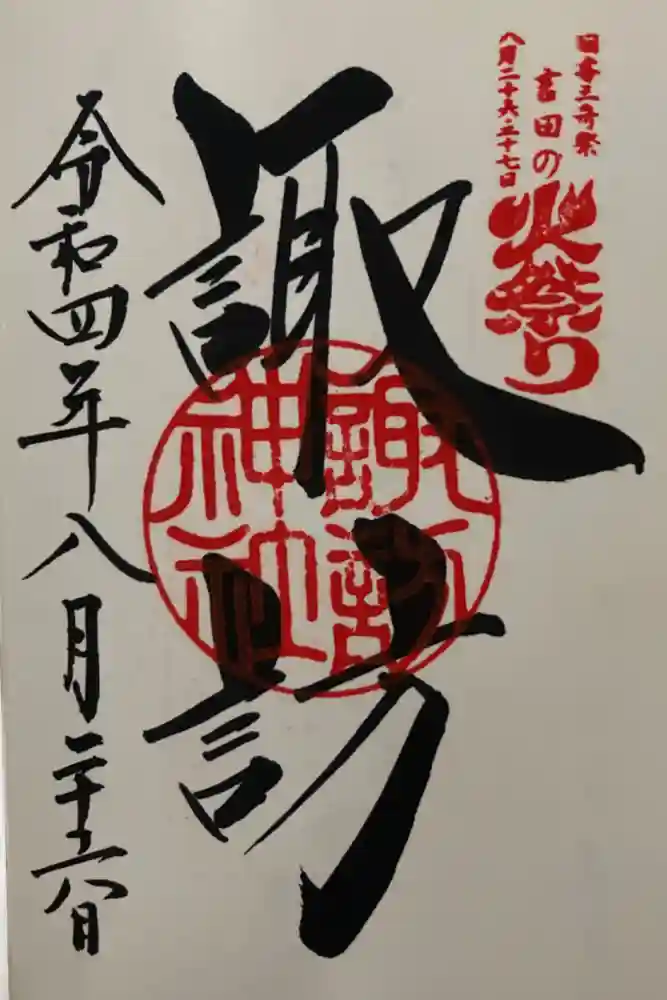 日本三奇祭
吉田の
八月二十六・二十七日
火祭り
諏訪
諏訪神社
令和四年八月二十六日